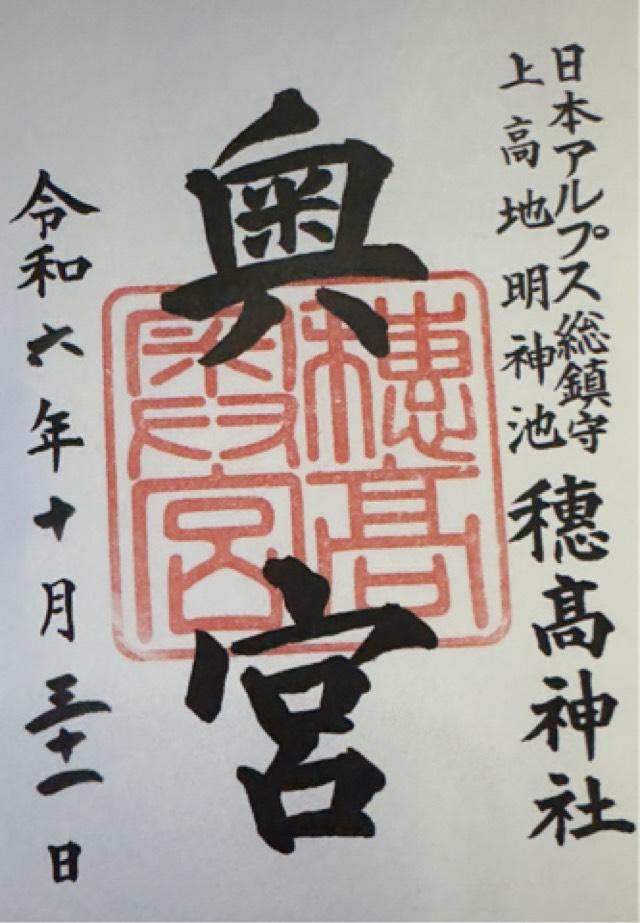 日本アルプス総鎮守
上高地明神池
穂髙神社
奥宮
穂髙奥宮
令和六年十月三十一日